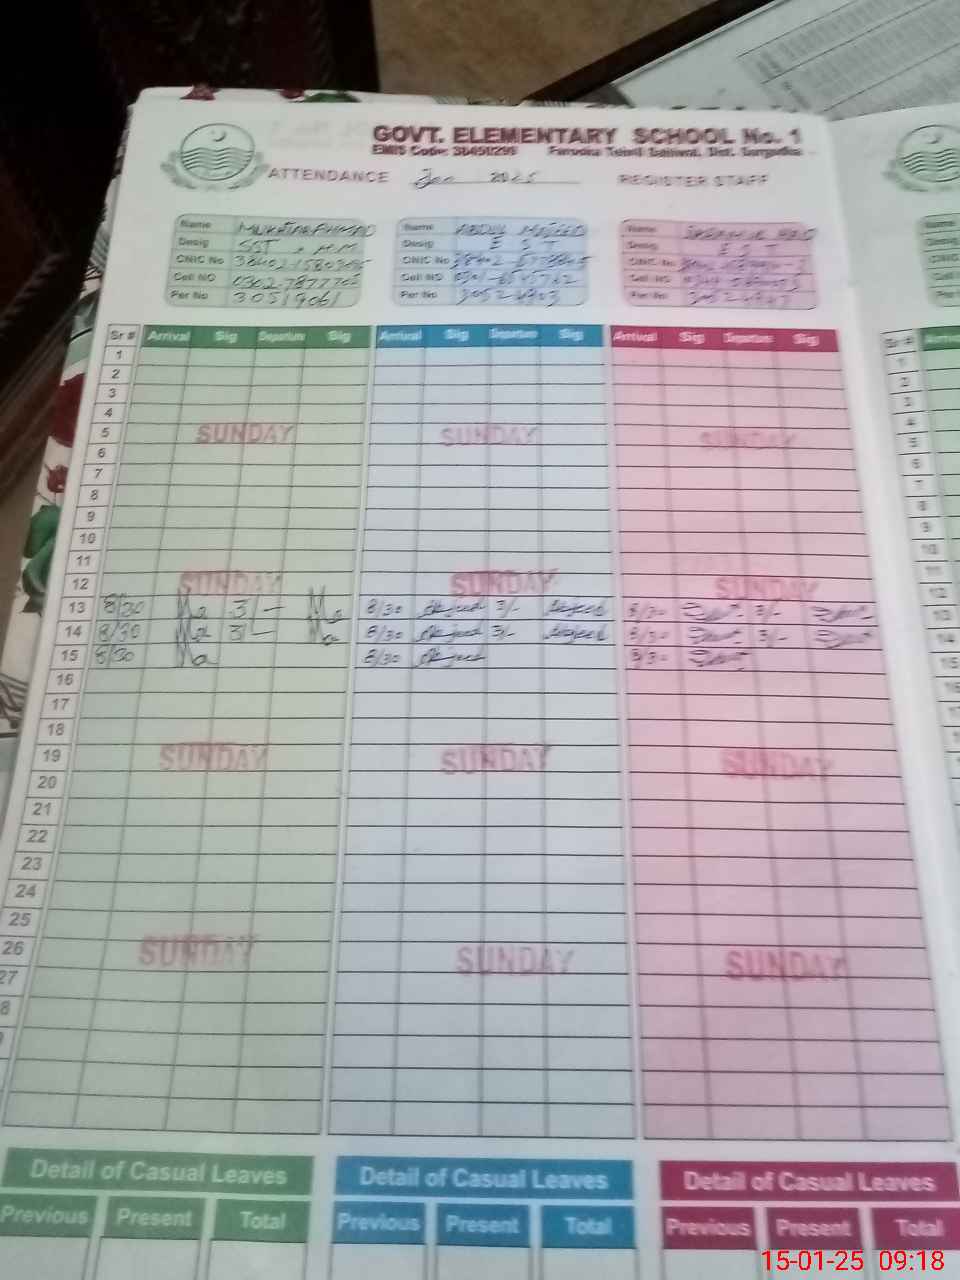 GOVT. ELEMENTARY SCHOOL No. 1
EMIS Code: 38450299 Faruoka Tehsil Sahiwal, Dist. Sargodha
ATTENDANCE Jan 2025 REGISTER STAFF
Name MUKHTAR AHMAD Name ABDUL MAJEED Name
Desig SST Desig E S T Desig E S T
CNIC No CNIC No CNIC No
Cell NO Cell NO Cell NO
Per No 30519061 Per No 30524903 Per No
Sr # Arrival Sig Departure Sig Arrival Sig Departure Sig Arrival Sig Departure Sig Sr #
1 1
2 2
3 3
4 4
5 SUNDAY SUNDAY SUNDAY 5
6 6
7 7
8 8
9 9
10 10
11 11
12 SUNDAY SUNDAY SUNDAY 12
13 8/30 3/- 8/30 Majeed 3/- Majeed 8/30 3/- 13
14 8/30 3/- 8/30 Majeed 3/- Majeed 8/30 3/- 14
15 8/30 8/30 Majeed 8/30 15
16 16
17 17
18
19 SUNDAY SUNDAY SUNDAY
20
21
22
23
24
25
26 SUNDAY SUNDAY SUNDAY
27
8
Detail of Casual Leaves Detail of Casual Leaves Detail of Casual Leaves
Previous Present Total Previous Present Total Previous Present Total
15-01-25 09:18